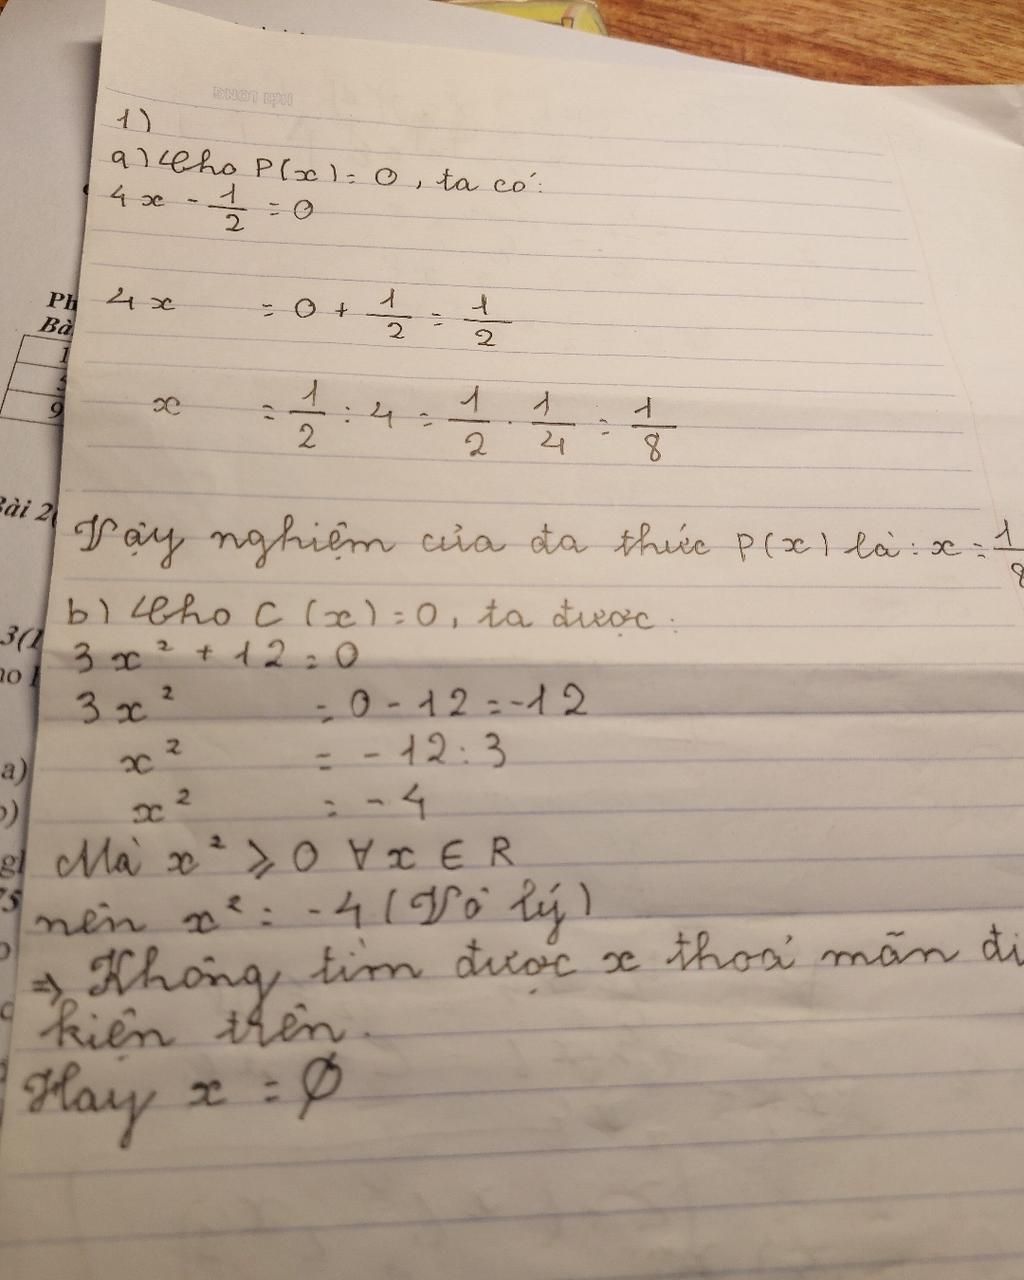 1)
a) Cho P(x) = 0, ta có:
4x - 1/2 = 0
4x = 0 + 1/2 = 1/2
x = 1/2 : 4 = 1/2 . 1/4 = 1/8
Vậy nghiệm của đa thức P(x) là: x = 1/8
b) Cho C(x) = 0, ta được:
3x² + 12 = 0
3x² = 0 - 12 = -12
x² = -12 : 3
x² = -4
Mà x² ⩾ 0 ∀x ∈ R
nên x² = -4 (Vô lý)
⇒ Không tìm được x thoả mãn đi
kiện trên.
Hay x = ∅
Ph
Bà
1
5
9
Bài 2(
3(1
a)